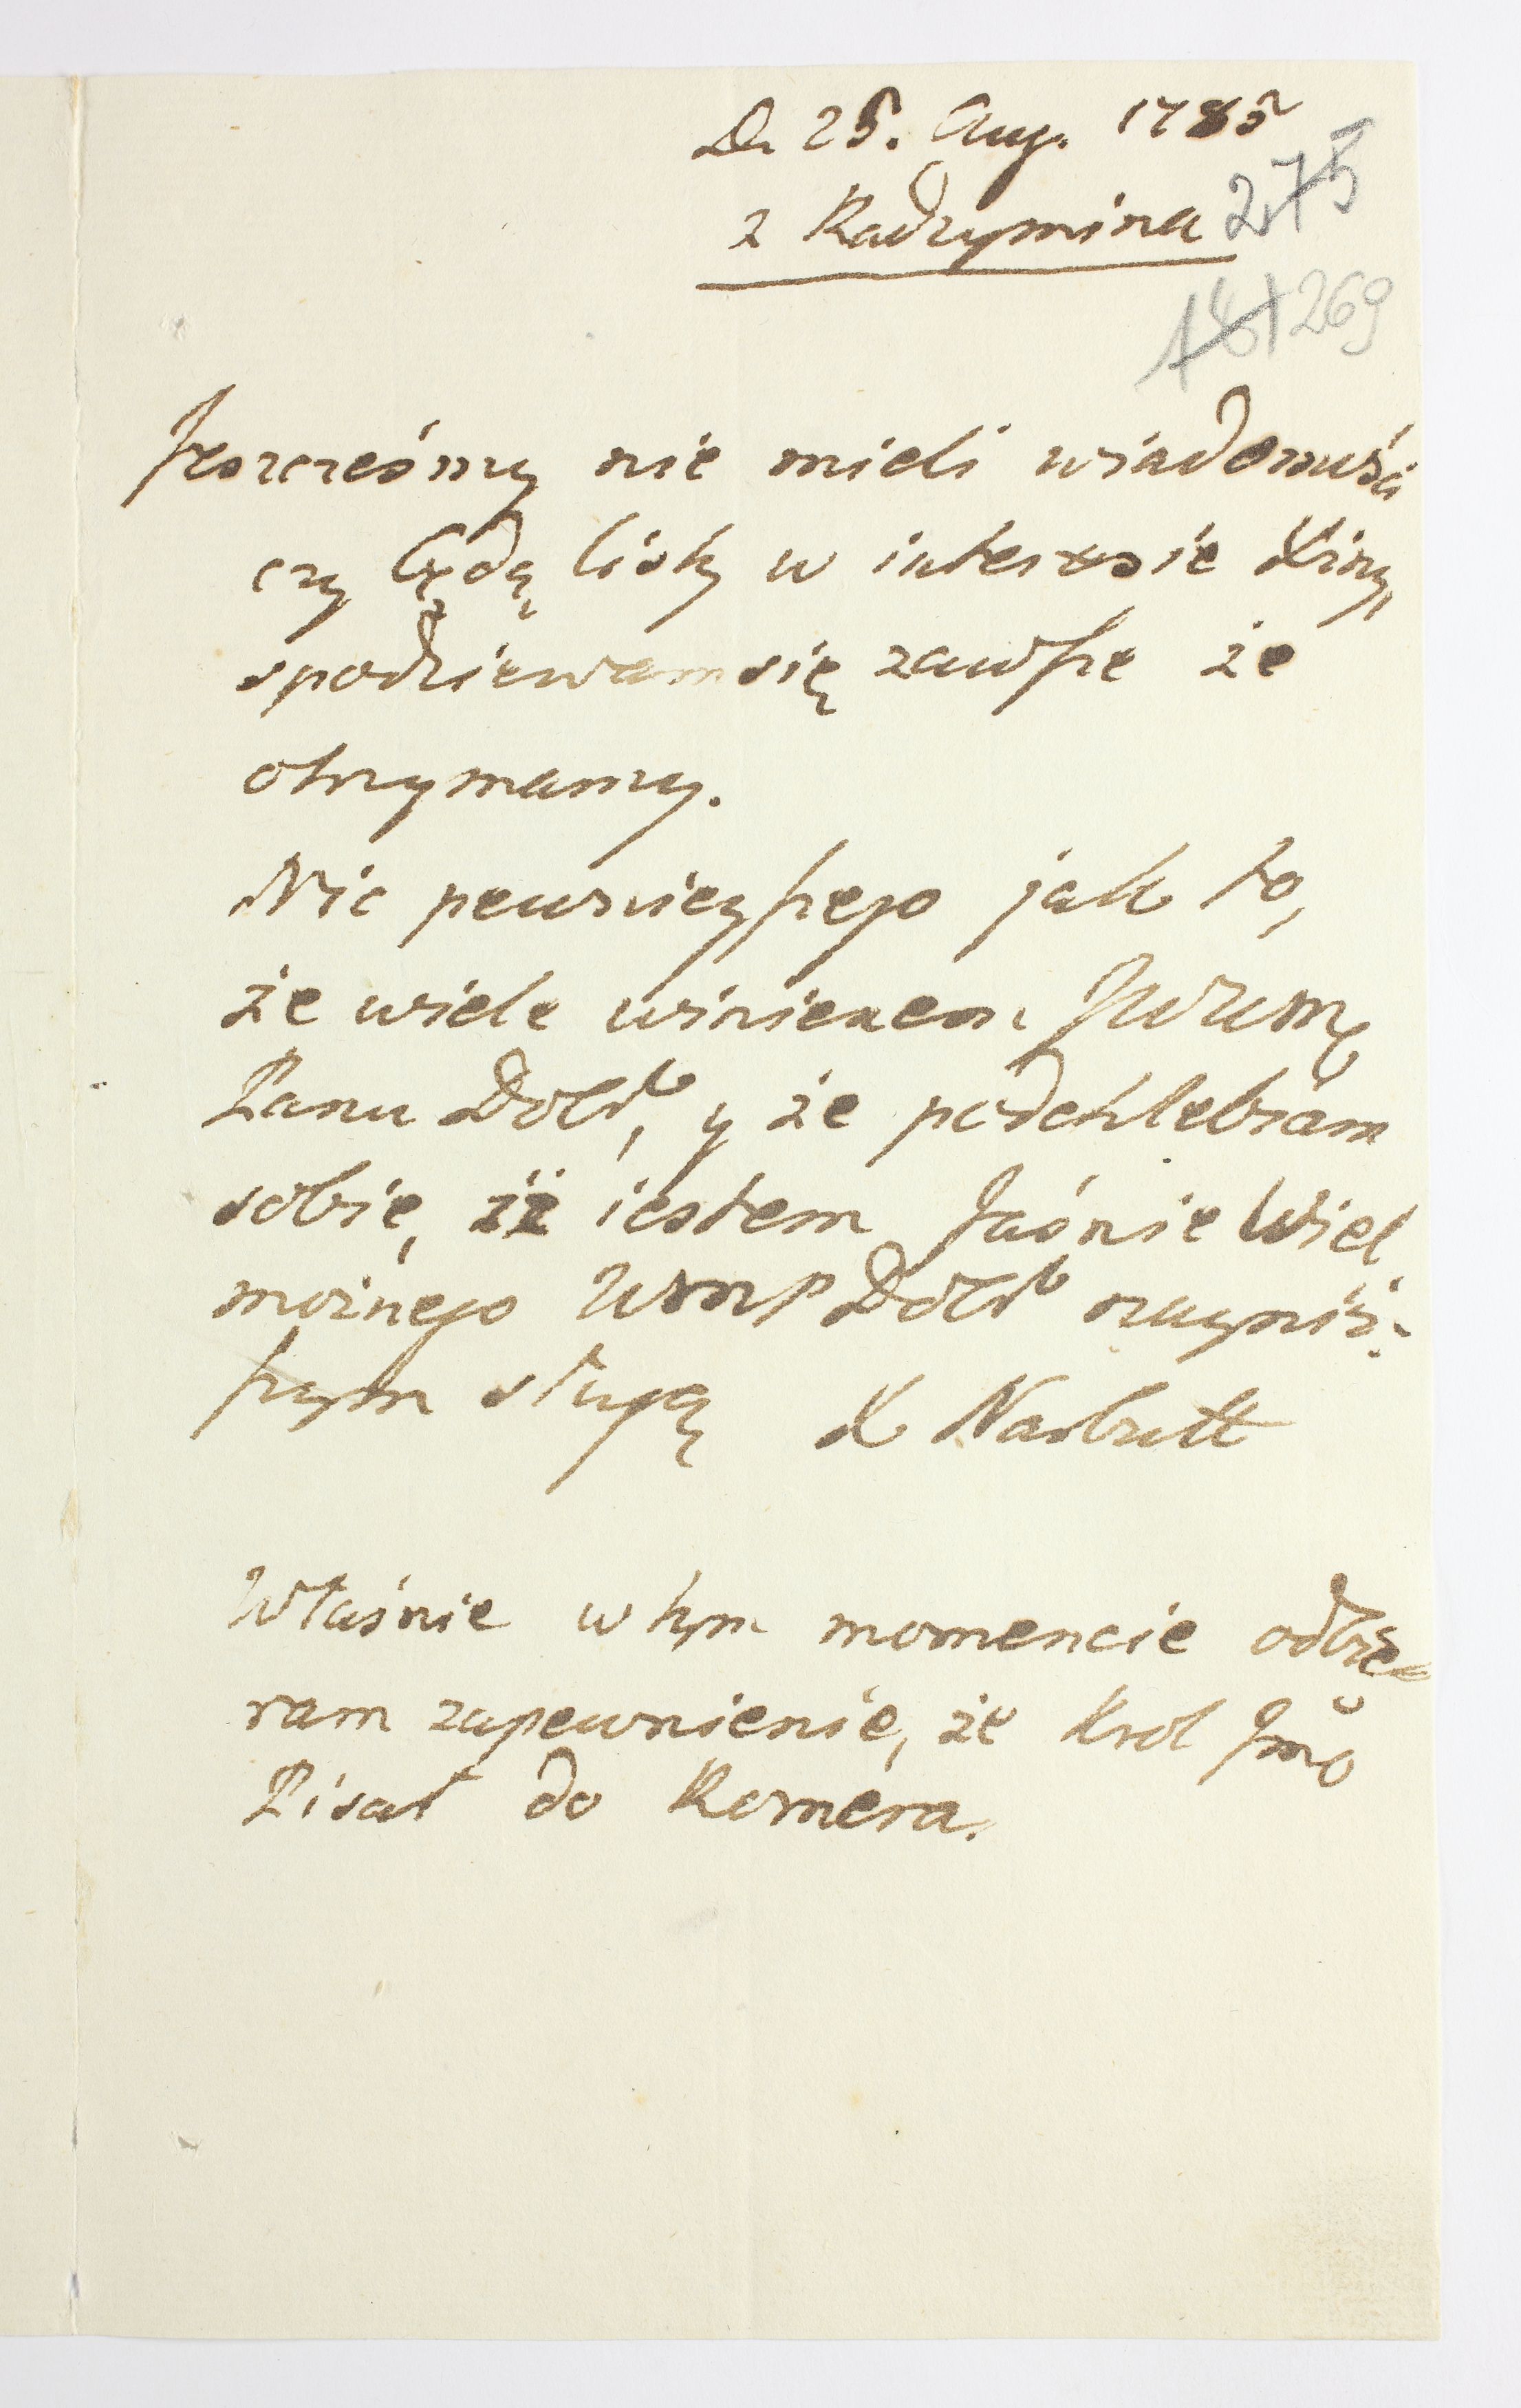 D. 25. Aug. 1785
z Radzymina 275
269
Jeszcześmy nie mieli wiadomości
czy będą listy w interessie
spodziewam się zawsze że
otrzymamy.
Nic pewnieyszego jak to,
że wiele winienem JWWM
Panu Dobr, y że podchlebiam
sobie, iż iestem Jaśnie Wiel
możnego WMP Dobr nayniż-
szym sługą K Narbutt
Właśnie w tym momencie odbie
ram zapewnienie, że Krol Jmć
Pisał do Romera.